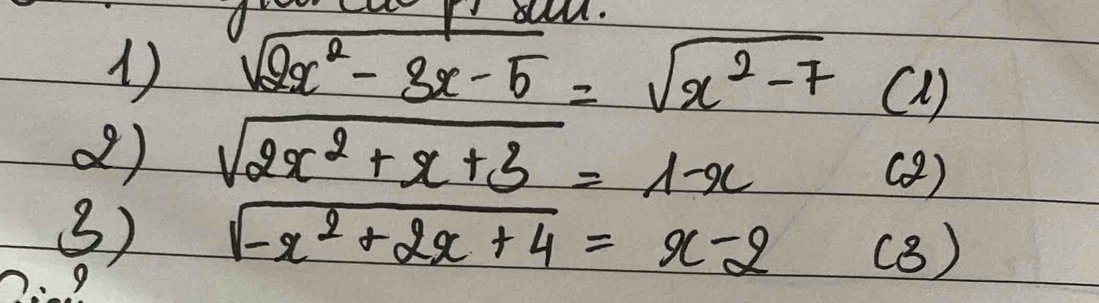 1) √(2x² - 3x - 5) = √(x² - 7) (1)
2) √(2x² + x + 3) = 1-x (2)
3) √(-x² + 2x + 4) = x-2 (3)